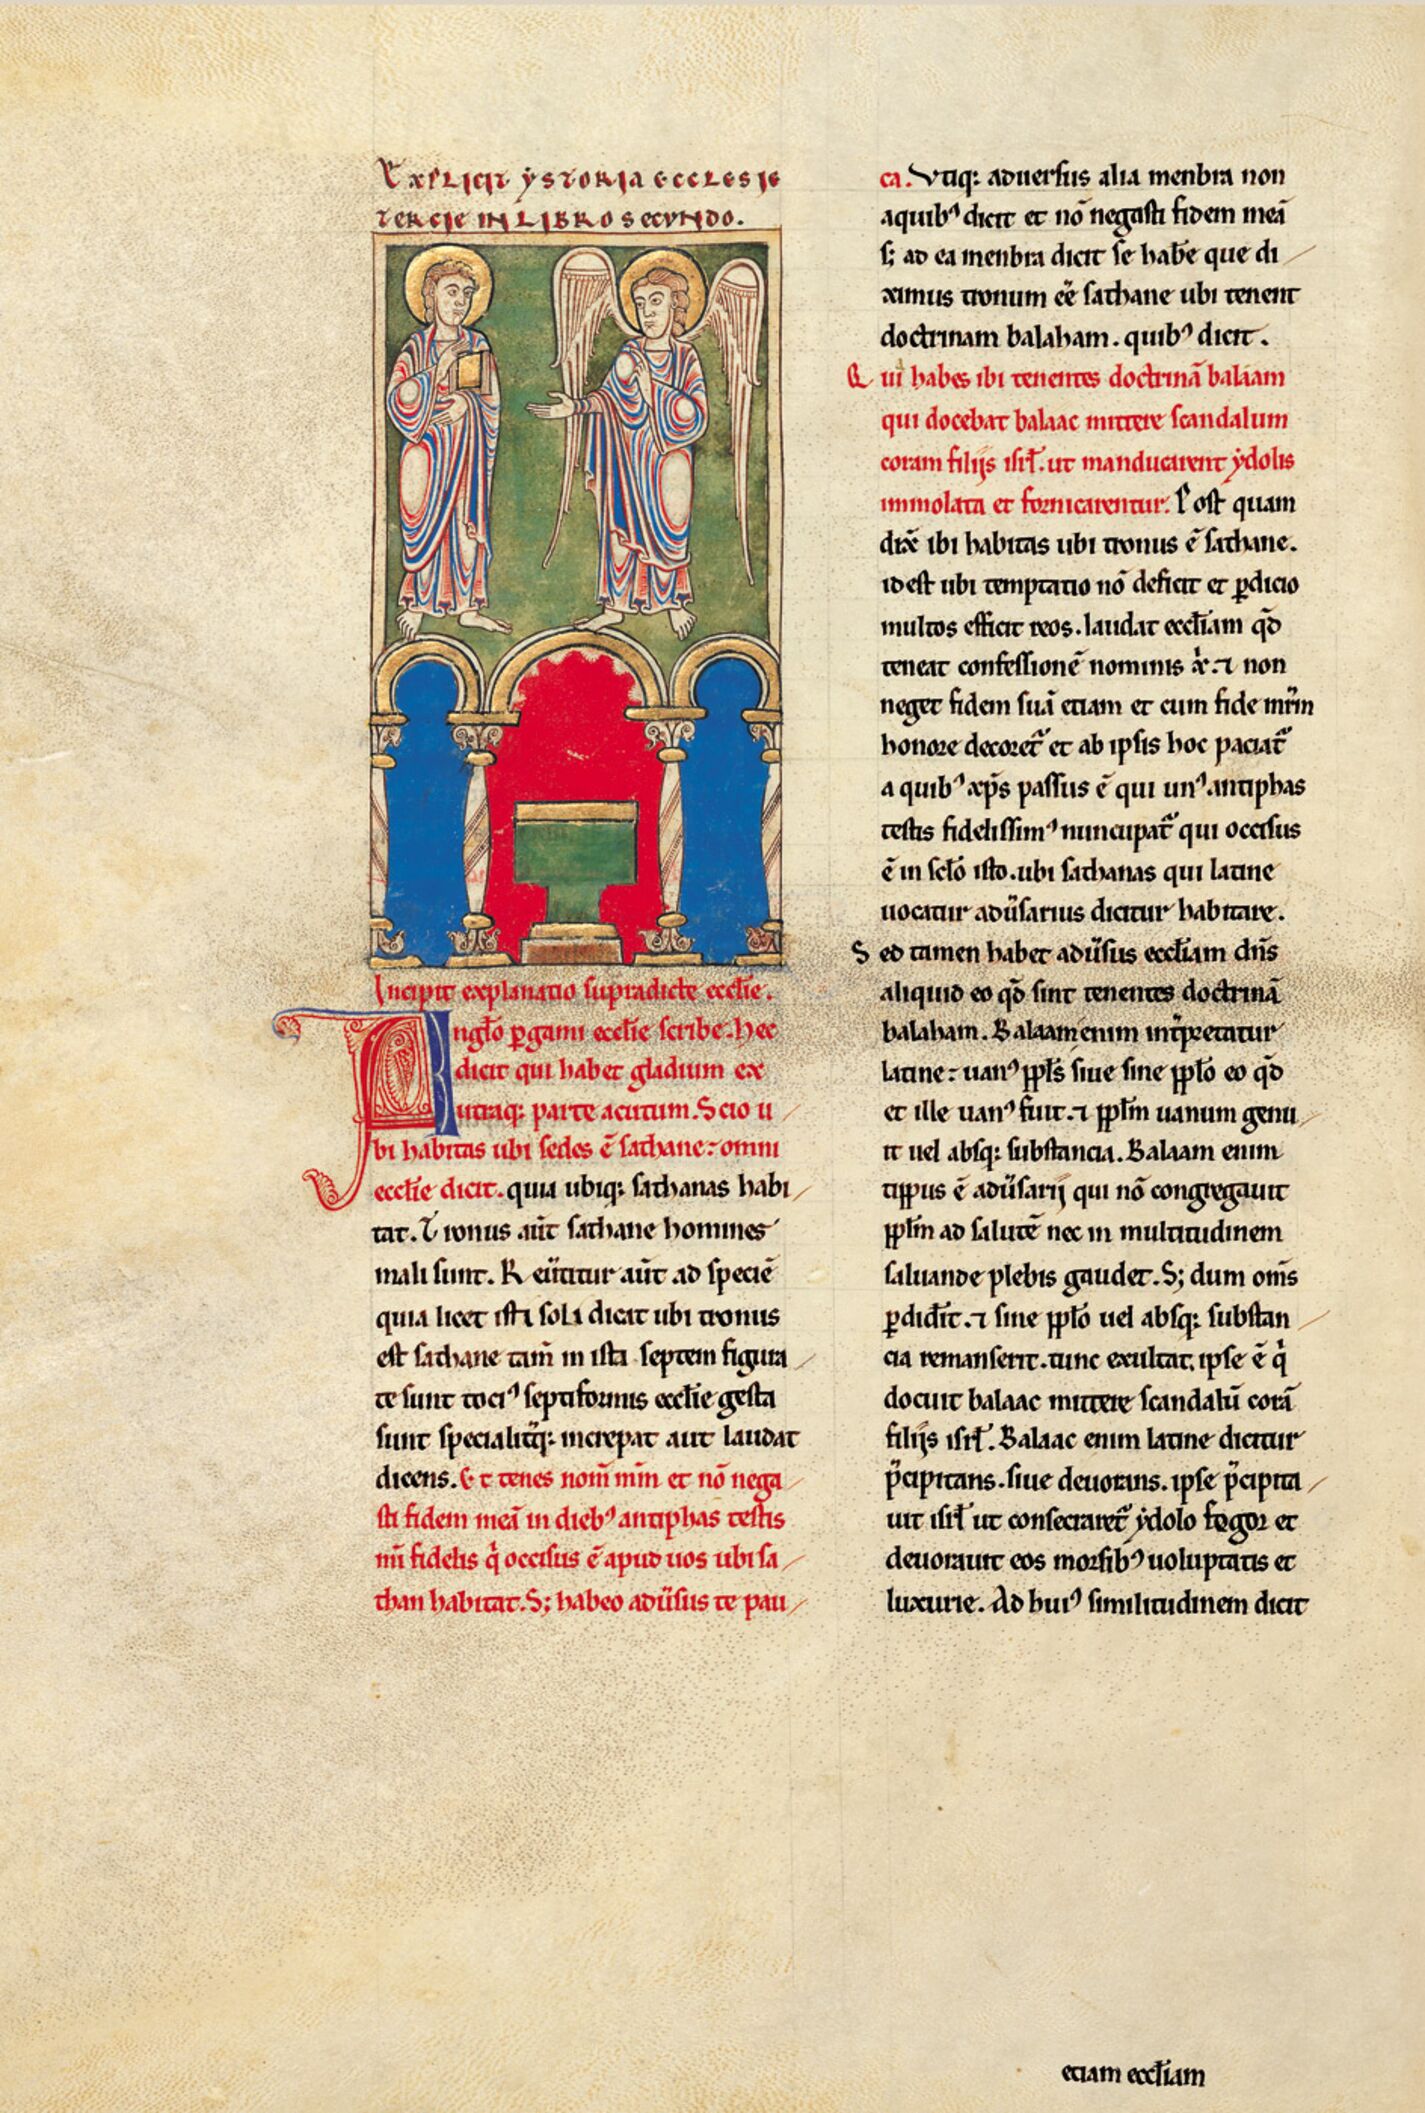 Explicit ystoria ecclesie
tercie in libro secundo.
Incipit explanatio supradicte eccłie.
Angło ꝑgami eccłie scribe. Hec
dicit qui habet gladium ex
utraq; parte acutum. Scio u
bi habitas ubi sedes ē sathane: omni
eccłie dicit. quia ubiq; sathanas habi
tat. Tronus aūt sathane homines
mali sunt. Reūtitur aūt ad speciē
quia licet isti soli dicat ubi tronus
est sathane tam̄ in ista septem figura
te sunt tociꝰ septiformis eccłie gesta
sunt specialitꝗ; increpat aut laudat
dicens. Et tenes nom̄ mm̄ et nō nega
sti fidem meā in diebꝰ antiphas testis
m̄i fidelis q̇ occisus ē apud uos ubi sa
than habitat. S; habeo adūsus te pau
ca. Vtiq; aduersus alia menbra non
a quibꝰ dicit et nō negasti fidem meā
s; ad ea menbra dicit se hab̄e que di
ximus tronum eē sathane ubi tenent
doctrinam balaham. quibꝰ dicit.
Qui habes ibi tenentes doctrinā balaam
qui docebat balaac mittere scandalum
coram filijs isrł. ut manducarent ydolis
immolata et fornicarentur. Post quam
dix̄ ibi habitas ubi tronus ē sathane.
id est ubi temptatio nō deficit et ꝑdicio
multos efficit reos. laudat eccłiam qđ
teneat confessionē nominis x̄. ⁊ non
neget fidem suā etiam et cum fide mr̄m
honore decoret̄ et ab ipsis hoc paciat̄
a quibꝰ xp̄s passus ē qui unꝰ. antiphas
testis fidelissimꝰ nuncupat̄ qui occisus
ē in scło isto. ubi sathanas qui latine
uocatur adūsarius dicitur habitare.
Sed tamen habet adūsus eccłiam dn̄s
aliquid eo qđ sint tenentes doctrinā
balaham. Balaam enim int̄pretatur
latine: uanꝰ ppłs siue sine ppło eo qđ
et ille uanꝰ fuit. ⁊ ppłm uanum genu
it uel absq; substancia. Balaam enim
tippus ē adūsarij qui nō congregauit
ppłm ad salutē nec in multitudinem
saluande plebis gaudet. S; dum om̄s
ꝑdidit̄. ⁊ sine ppło uel absq; substan
cia remanserit. tunc exultat. ipse ē q̇
docuit balaac mittere scandalū corā
filijs isrł. Balaac enim latine dicitur
p̄cipitans. siue deuorans. ipse p̄cipita
uit isrł ut consecraret̄ ydolo fogor et
deuorauit eos morsibꝰ uoluptatis et
luxurie. Ad huiꝰ similitudinem dicit
etiam eccłiam